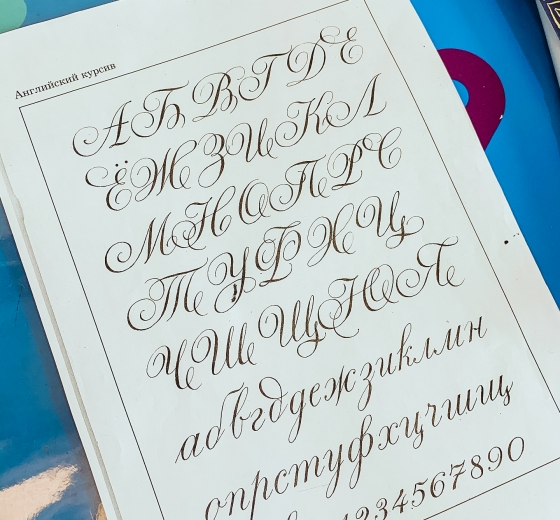 Английский курсив
АБВГДЕ
ЁЖЗИКЛ
МНОПРС
ТУФХЦ
ЧШЩЮЯ
абвгдежзиклмн
опрстуфхцчшщ
1234567890